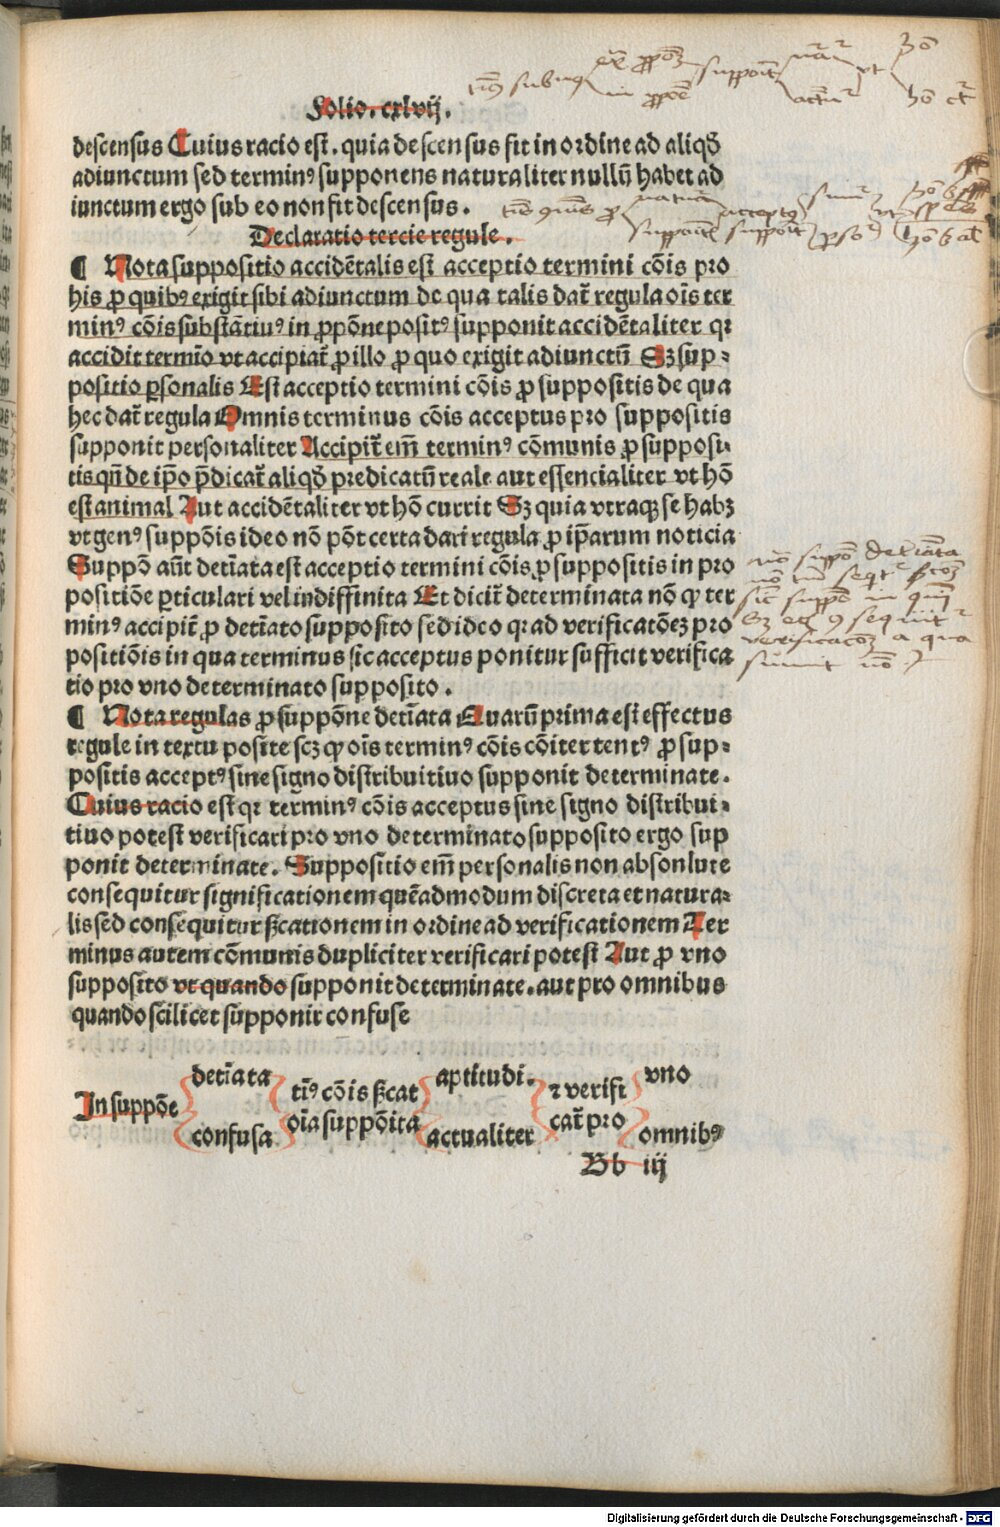 Folio. cxlvij.
descensus Cuius racio est. quia descensus fit in ordine ad aliqđ
adiunctum sed terminꝰ supponens naturaliter nullũ habet ad
iunctum ergo sub eo non fit descensus.
Declaratio tercie regule.
¶ Nota suppositio accidẽtalis est acceptio termini cõis pro
his ꝓ quibꝰ exigit sibi adiunctum de qua talis dať regula oĩs ter
minꝰ cõis substãtiuꝰ in ꝓpõne positꝰ supponit accidẽtaliter qꝛ
accidit termĩo vt accipiať ꝓ illo ꝓ quo exigit adiunctũ Sꝫ sup⸗
positio ꝑsonalis Est acceptio termini cõis ꝓ suppositis de qua
hec dať regula Omnis terminus cõis acceptus pro suppositis
supponit personaliter Accipiť em̃ terminꝰ cõmunis ꝓ supposi⸗
tis qñ de ip̃o p̃dicať aliqđ predicatũ reale aut essencialiter vt hõ
est animal Aut accidẽtaliter vt hõ currit Sꝫ quia vtraqꝫ se habꝫ
vt genꝰ suppõis ideo nõ põt certa dari regula ꝓ ip̃arum noticia
Suppõ aũt detĩata est acceptio termini cõis ꝓ suppositis in pro
positiõe ꝑticulari vel indiffinita Et diciť determinata nõ ꝙ ter
minꝰ accipiť ꝓ detĩato supposito sed ideo qꝛ ad verificatõeꝫ pro
positiõis in qua terminus sic acceptus ponitur sufficit verifica
tio pro vno determinato supposito.
¶ Nota regulas ꝓ suppõne detĩata Quarũ prima est effectus
regule in textu posite scꝫ ꝙ oĩs terminꝰ cõis cõiter tentꝰ ꝓ sup⸗
positis acceptꝰ sine signo distribuitiuo supponit determinate.
Cuius racio est qꝛ terminꝰ cõis acceptus sine signo distribui⸗
tiuo potest verificari pro vno determinato supposito ergo sup
ponit determinate. Suppositio em̃ personalis non absonlute
consequitur significationem quẽadmodum discreta et natura⸗
lis sed consequitur ẜcationem in ordine ad verificationem Ter
minus autem cõmunis dupliciter verificari potest Aut ꝓ vno
supposito vt quando supponit determinate. aut pro omnibus
quando scilicet supponit confuse
In suppõe
detĩata
confusa
tĩꝰ cõis ẜcat
oĩa suppõita
aptitudi.
actualiter
⁊ verifi
cať pro
vno
omnibꝰ
Bb iij
Digitalisierung gefördert durch die Deutsche Forschungsgemeinschaft - DFG